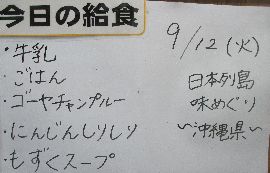 今日の給食
・牛乳
・ごはん
・ゴーヤチャンプルー
・にんじんしりしり
・もずくスープ
9/12(火)
日本列島
味めぐり
〜沖縄県〜